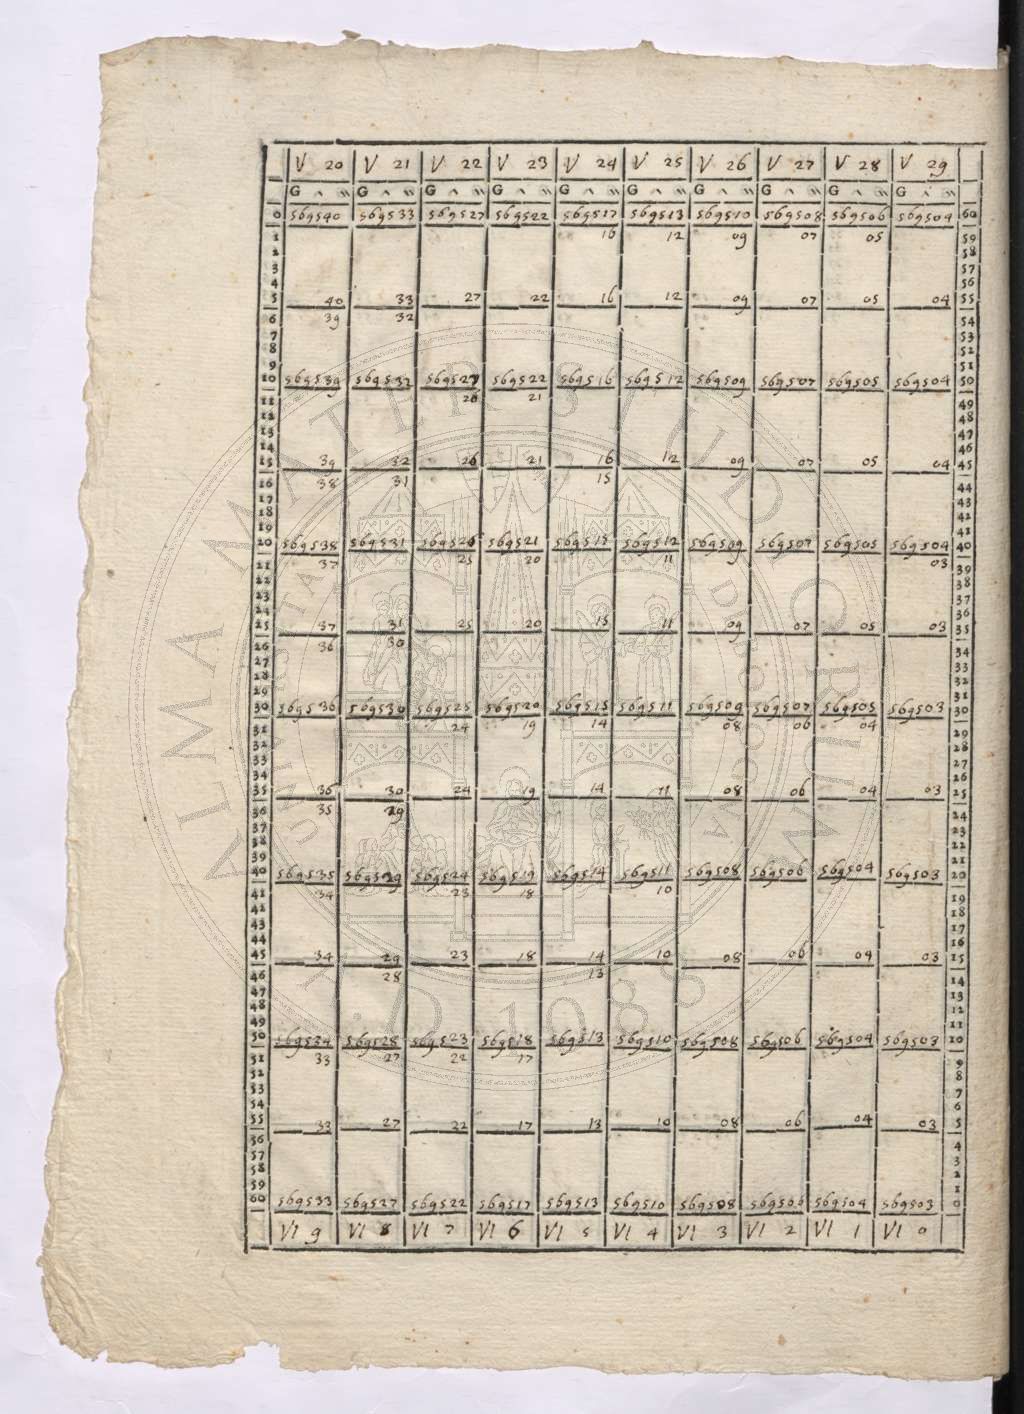 V 20 V 21 V 22 V 23 V 24 V 25 V 26 V 27 V 28 V 29
G G G G G G G G G G
0 569540 569533 569527 569522 569517 569513 569510 569508 569506 569504 60
1 16 12 09 07 05 59
2 58
3 57
4 56
5 40 33 27 22 16 12 09 07 05 04 55
6 39 32 54
7 53
8 52
9 51
10 569539 569532 569527 569522 569516 569512 569509 569507 569505 569504 50
11 26 21 49
12 48
13 47
14 46
15 39 32 26 21 16 12 09 07 05 04 45
16 38 31 15 44
17 43
18 42
19 41
20 569538 569531 569526 569521 569515 569512 569509 569507 569505 569504 40
21 37 25 20 11 03 39
22 38
23 37
24 36
25 37 31 25 20 15 11 09 07 05 03 35
26 36 30 34
27 33
28 32
29 31
30 569536 569530 569525 569520 569515 569511 569509 569507 569505 569503 30
31 24 19 14 08 06 04 29
32 28
33 27
34 26
35 36 30 24 19 14 11 08 06 04 03 25
36 35 29 24
37 23
38 22
39 21
40 569535 569529 569524 569519 569514 569511 569508 569506 569504 569503 20
41 34 23 18 10 19
42 18
43 17
44 16
45 34 29 23 18 14 10 08 06 04 03 15
46 28 13 14
47 13
48 12
49 11
50 569534 569528 569523 569518 569513 569510 569508 569506 569504 569503 10
51 33 27 22 17 9
52 8
53 7
54 6
55 33 27 22 17 13 10 08 06 04 03 5
56 4
57 3
58 2
59 1
60 569533 569527 569522 569517 569513 569510 569508 569506 569504 569503 0
VI 9 VI 8 VI 7 VI 6 VI 5 VI 4 VI 3 VI 2 VI 1 VI 0
ALMA MATER STUDIORUM
A.D. 1088